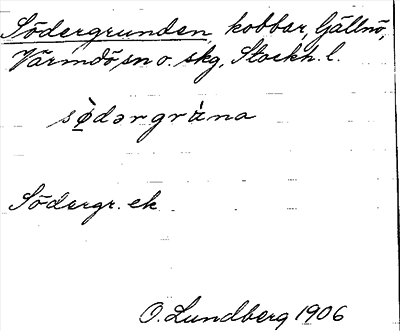 Södergrunden, kobbar, Gällnö,
Värmdö sn o. skg, Stockh. l.
sø̀dərgrùna
Södergr. ek.
O. Lundberg 1906